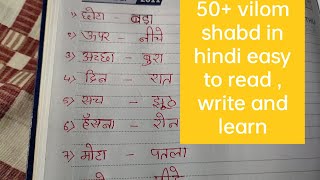 2011
1) छोटा - बड़ा
2) ऊपर - नीचे
3) अच्छा - बुरा
4) दिन - रात
5) सच - झूठ
6) हँसना - रोना
7) मोटा - पतला
50+ vilom
shabd in
hindi easy
to read ,
write and
learn